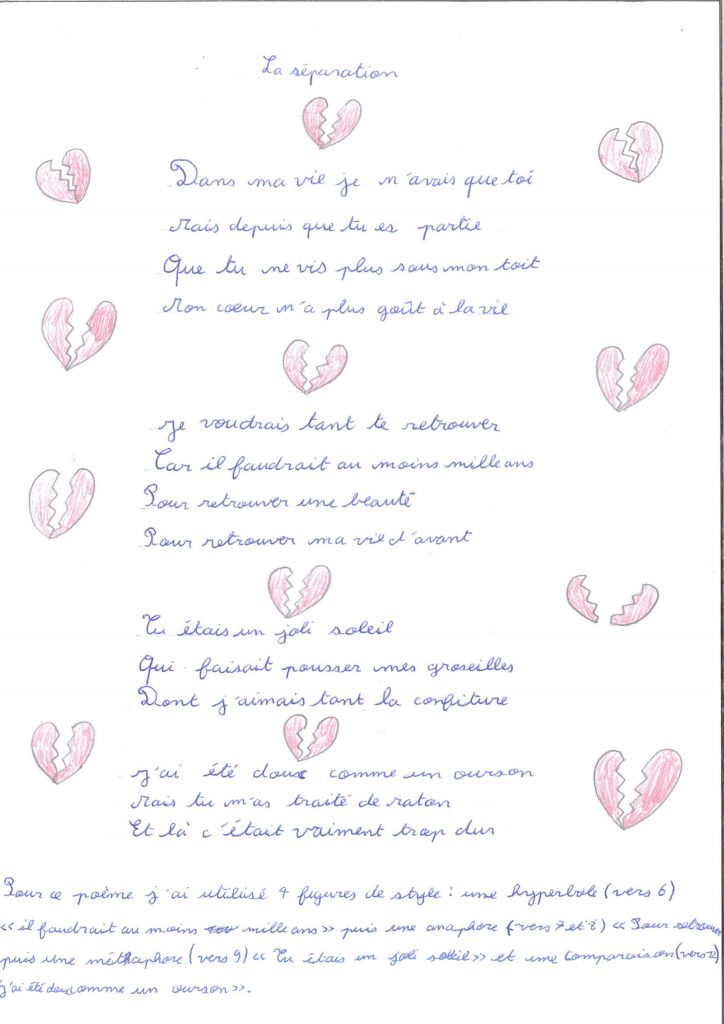 La séparation
Dans ma vie je n'avais que toi
Mais depuis que tu es partie
Que tu ne vis plus sous mon toit
Mon coeur n'a plus goût à la vie
Je voudrais tant te retrouver
Car il faudrait au moins mille ans
Pour retrouver une beauté
Pour retrouver ma vie d'avant
Tu étais un joli soleil
Qui faisait pousser mes groseilles
Dont j'aimais tant la confiture
J'ai été doux comme un ourson
Mais tu m'as traité de raton
Et là c'était vraiment trop dur
Pour ce poème j'ai utilisé 4 figures de style : une hyperbole (vers 6)
«il faudrait au moins mille ans» puis une anaphore (vers 7 et 8) «Pour retrouver
puis une méthaphore (vers 9) «Tu étais un joli soleil» et une comparaison (vers 12)
j'ai été doux comme un ourson».